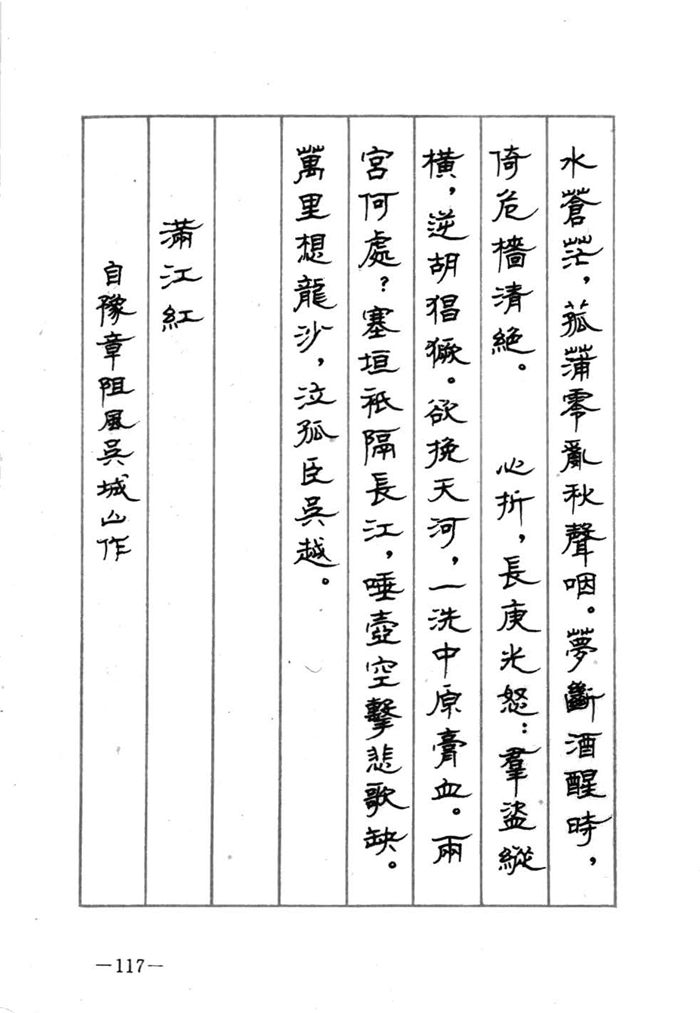 水蒼茫，菰蒲零亂秋聲咽。夢斷酒醒時，
倚危檣清絶。　心折，長庚光怒：羣盜縱
橫，逆胡猖獗。欲挽天河，一洗中原膏血。兩
宮何處？塞垣祇隔長江，唾壺空擊悲歌缺。
萬里想龍沙，泣孤臣吳越。
滿江紅
自豫章阻風吳城山作
—117—